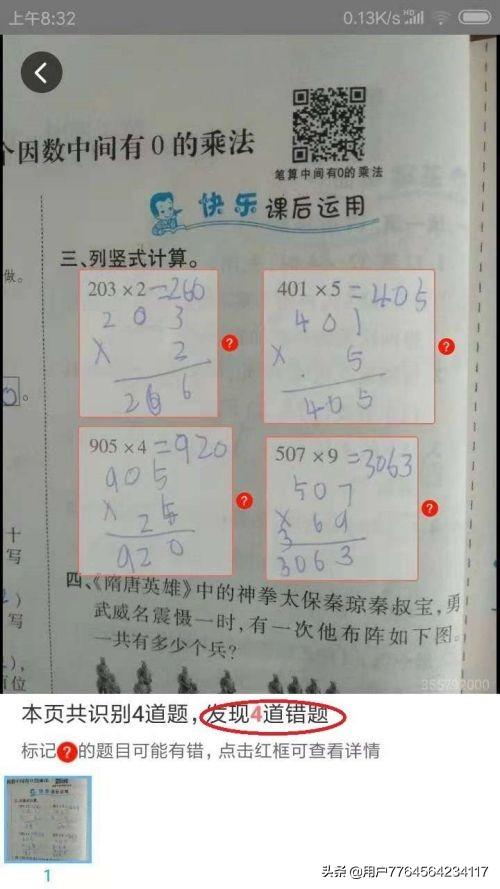 上午8:32
0.13K/s HD
个因数中间有0的乘法
笔算中间有0的乘法
快乐课后运用
三、列竖式计算。
做。
203×2=260
203
× 2
206
401×5=405
401
× 5
405
905×4=920
905
×
920
507×9=3063
507
× 69
3
3063
十
写
写
四、《隋唐英雄》中的神拳太保秦琼秦叔宝,勇
武威名震慑一时,有一次他布阵如下图。
一共有多少个兵?
355792000
本页共识别4道题,发现4道错题
标记?的题目可能有错,点击红框可查看详情
1
头条 @用户7764564234117